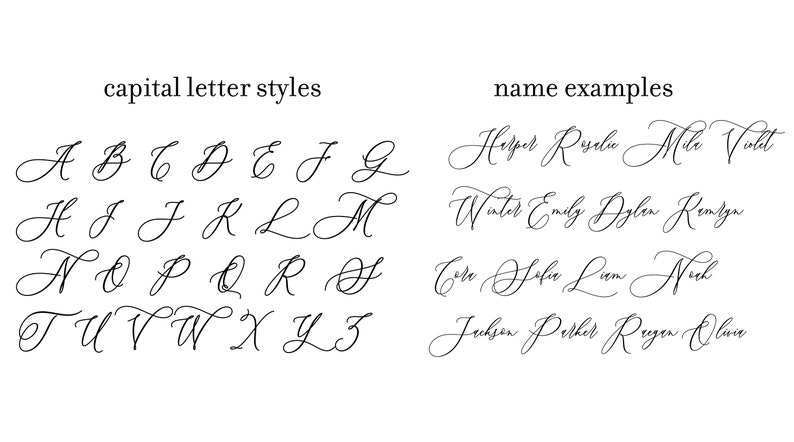 capital letter styles
A B C D E F G
H I J K L M
N O P Q R S
T U V W X Y Z
name examples
Harper Rosalie Mila Violet
Winter Emily Dylan Kamryn
Cora Sofia Liam Noah
Jackson Parker Raegan Olivia